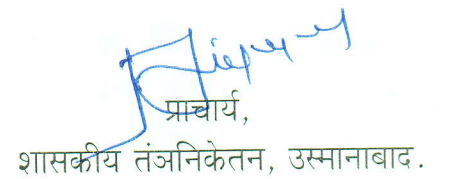 प्राचार्य,
शासकीय तंञनिकेतन, उस्मानाबाद.